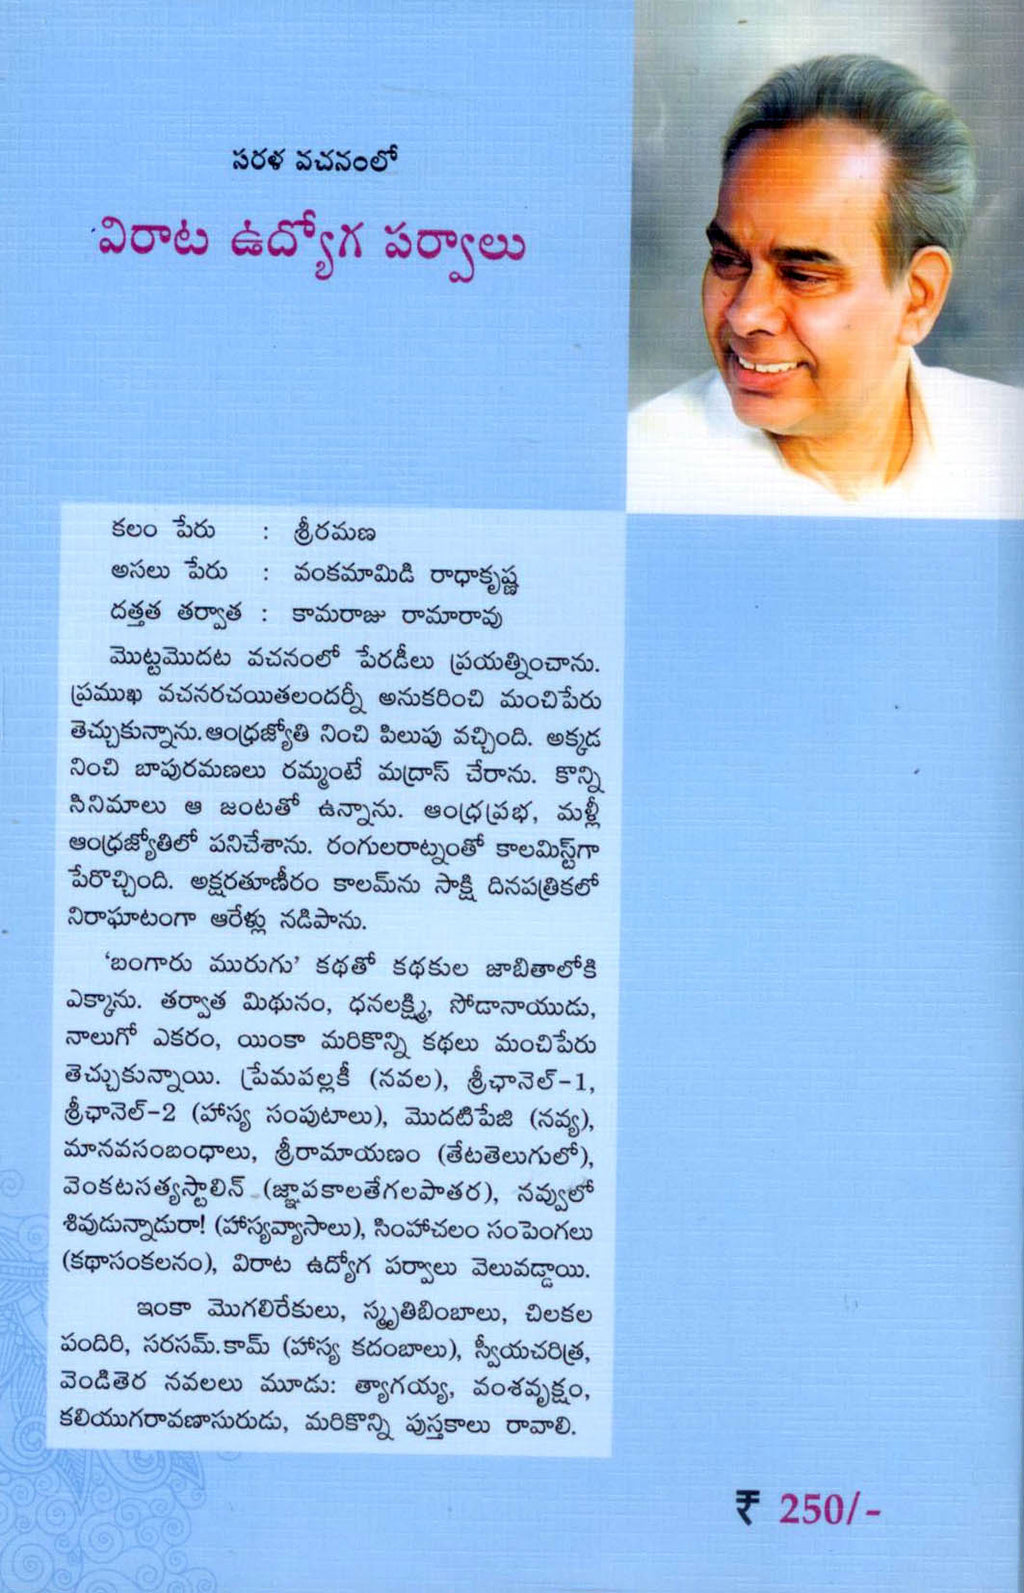 సరళ వచనంలో
విరాట ఉద్యోగ పర్వాలు
కలం పేరు : శ్రీరమణ
అసలు పేరు : వంకమామిడి రాధాకృష్ణ
దత్తత తర్వాత : కామరాజు రామారావు
మొట్టమొదట వచనంలో పేరడీలు ప్రయత్నించాను.
ప్రముఖ వచనరచయితలందర్నీ అనుకరించి మంచిపేరు
తెచ్చుకున్నాను. ఆంధ్రజ్యోతి నించి పిలుపు వచ్చింది. అక్కడ
నించి బాపురమణలు రమ్మంటే మద్రాస్ చేరాను. కొన్ని
సినిమాలు ఆ జంటతో ఉన్నాను. ఆంధ్రప్రభ, మళ్లీ
ఆంధ్రజ్యోతిలో పనిచేశాను. రంగులరాట్నంతో కాలమిస్ట్‌గా
పేరొచ్చింది. అక్షరతూణీరం కాలమ్‌ను సాక్షి దినపత్రికలో
నిరాఘాటంగా ఆరేళ్లు నడిపాను.
‘బంగారు మురుగు’ కథతో కథకుల జాబితాలోకి
ఎక్కాను. తర్వాత మిథునం, ధనలక్ష్మి, సోడానాయుడు,
నాలుగో ఎకరం, యింకా మరికొన్ని కథలు మంచిపేరు
తెచ్చుకున్నాయి. ప్రేమపల్లకీ (నవల), శ్రీఛానెల్-1,
శ్రీఛానెల్-2 (హాస్య సంపుటాలు), మొదటిపేజి (నవ్య),
మానవసంబంధాలు, శ్రీరామాయణం (తేటతెలుగులో),
వెంకటసత్యస్టాలిన్ (జ్ఞాపకాలతేగలపాతర), నవ్వులో
శివుడున్నాడురా! (హాస్యవ్యాసాలు), సింహాచలం సంపెంగలు
(కథాసంకలనం), విరాట ఉద్యోగ పర్వాలు వెలువడ్డాయి.
ఇంకా మొగలిరేకులు, స్మృతిబింబాలు, చిలకల
పందిరి, సరసమ్.కామ్ (హాస్య కదంబాలు), స్వీయచరిత్ర,
వెండితెర నవలలు మూడు: త్యాగయ్య, వంశవృక్షం,
కలియుగరావణాసురుడు, మరికొన్ని పుస్తకాలు రావాలి.
₹ 250/-